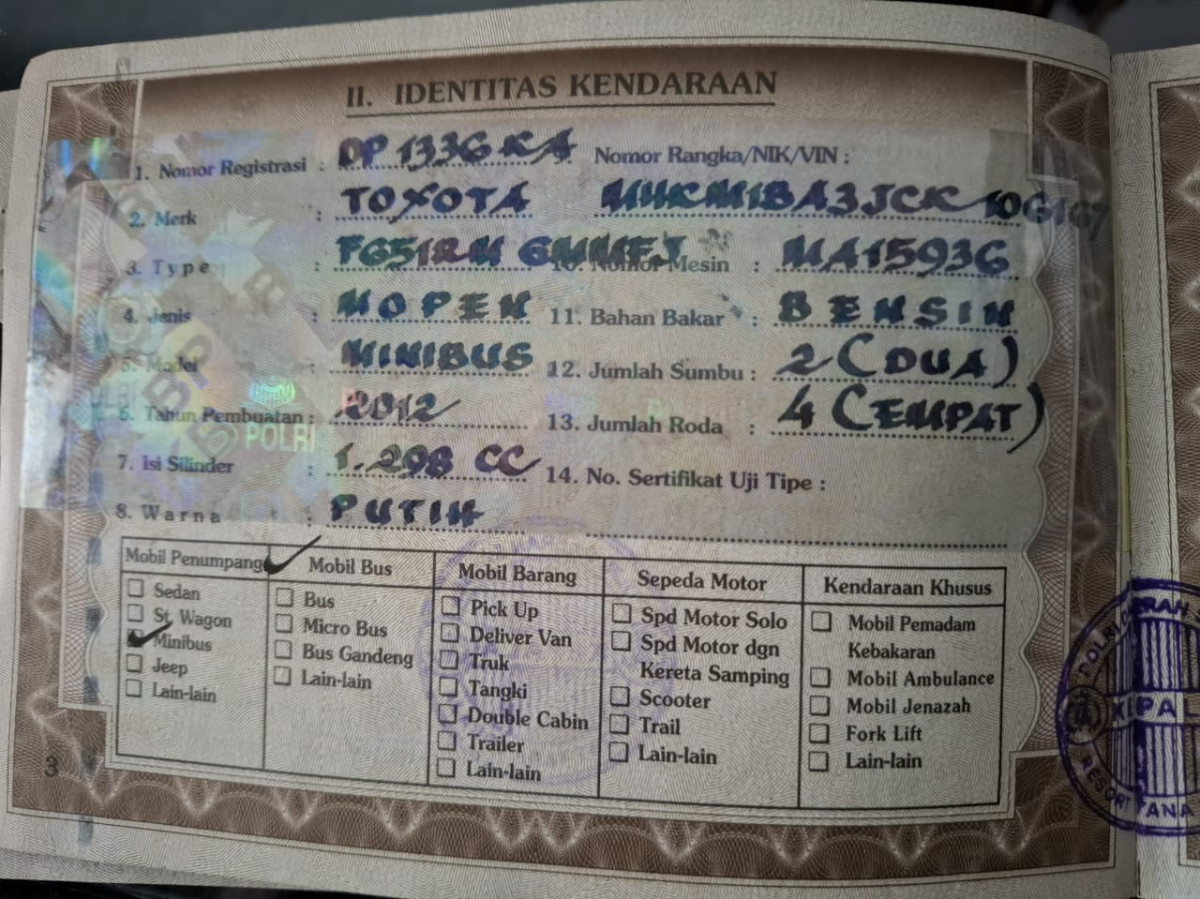 II. IDENTITAS KENDARAAN
1. Nomor Registrasi : DP 1336 KA 9. Nomor Rangka/NIK/VIN :
2. Merk : TOYOTA MHKM1BA3JCK
3. Type : F651RM GMMFJ 10. Nomor Mesin : MA15936
4. Jenis : MOPEN 11. Bahan Bakar : BENSIN
5. Model : MINIBUS 12. Jumlah Sumbu : 2 (DUA)
6. Tahun Pembuatan : 2012 13. Jumlah Roda : 4 (EMPAT)
7. Isi Silinder : 1.298 CC 14. No. Sertifikat Uji Tipe :
8. Warna : PUTIH
Mobil Penumpang
Sedan
St. Wagon
Minibus
Jeep
Lain-lain
Mobil Bus
Bus
Micro Bus
Bus Gandeng
Lain-lain
Mobil Barang
Pick Up
Deliver Van
Truk
Tangki
Double Cabin
Trailer
Lain-lain
Sepeda Motor
Spd Motor Solo
Spd Motor dgn
Kereta Samping
Scooter
Trail
Lain-lain
Kendaraan Khusus
Mobil Pemadam
Kebakaran
Mobil Ambulance
Mobil Jenazah
Fork Lift
Lain-lain
3
POLRI